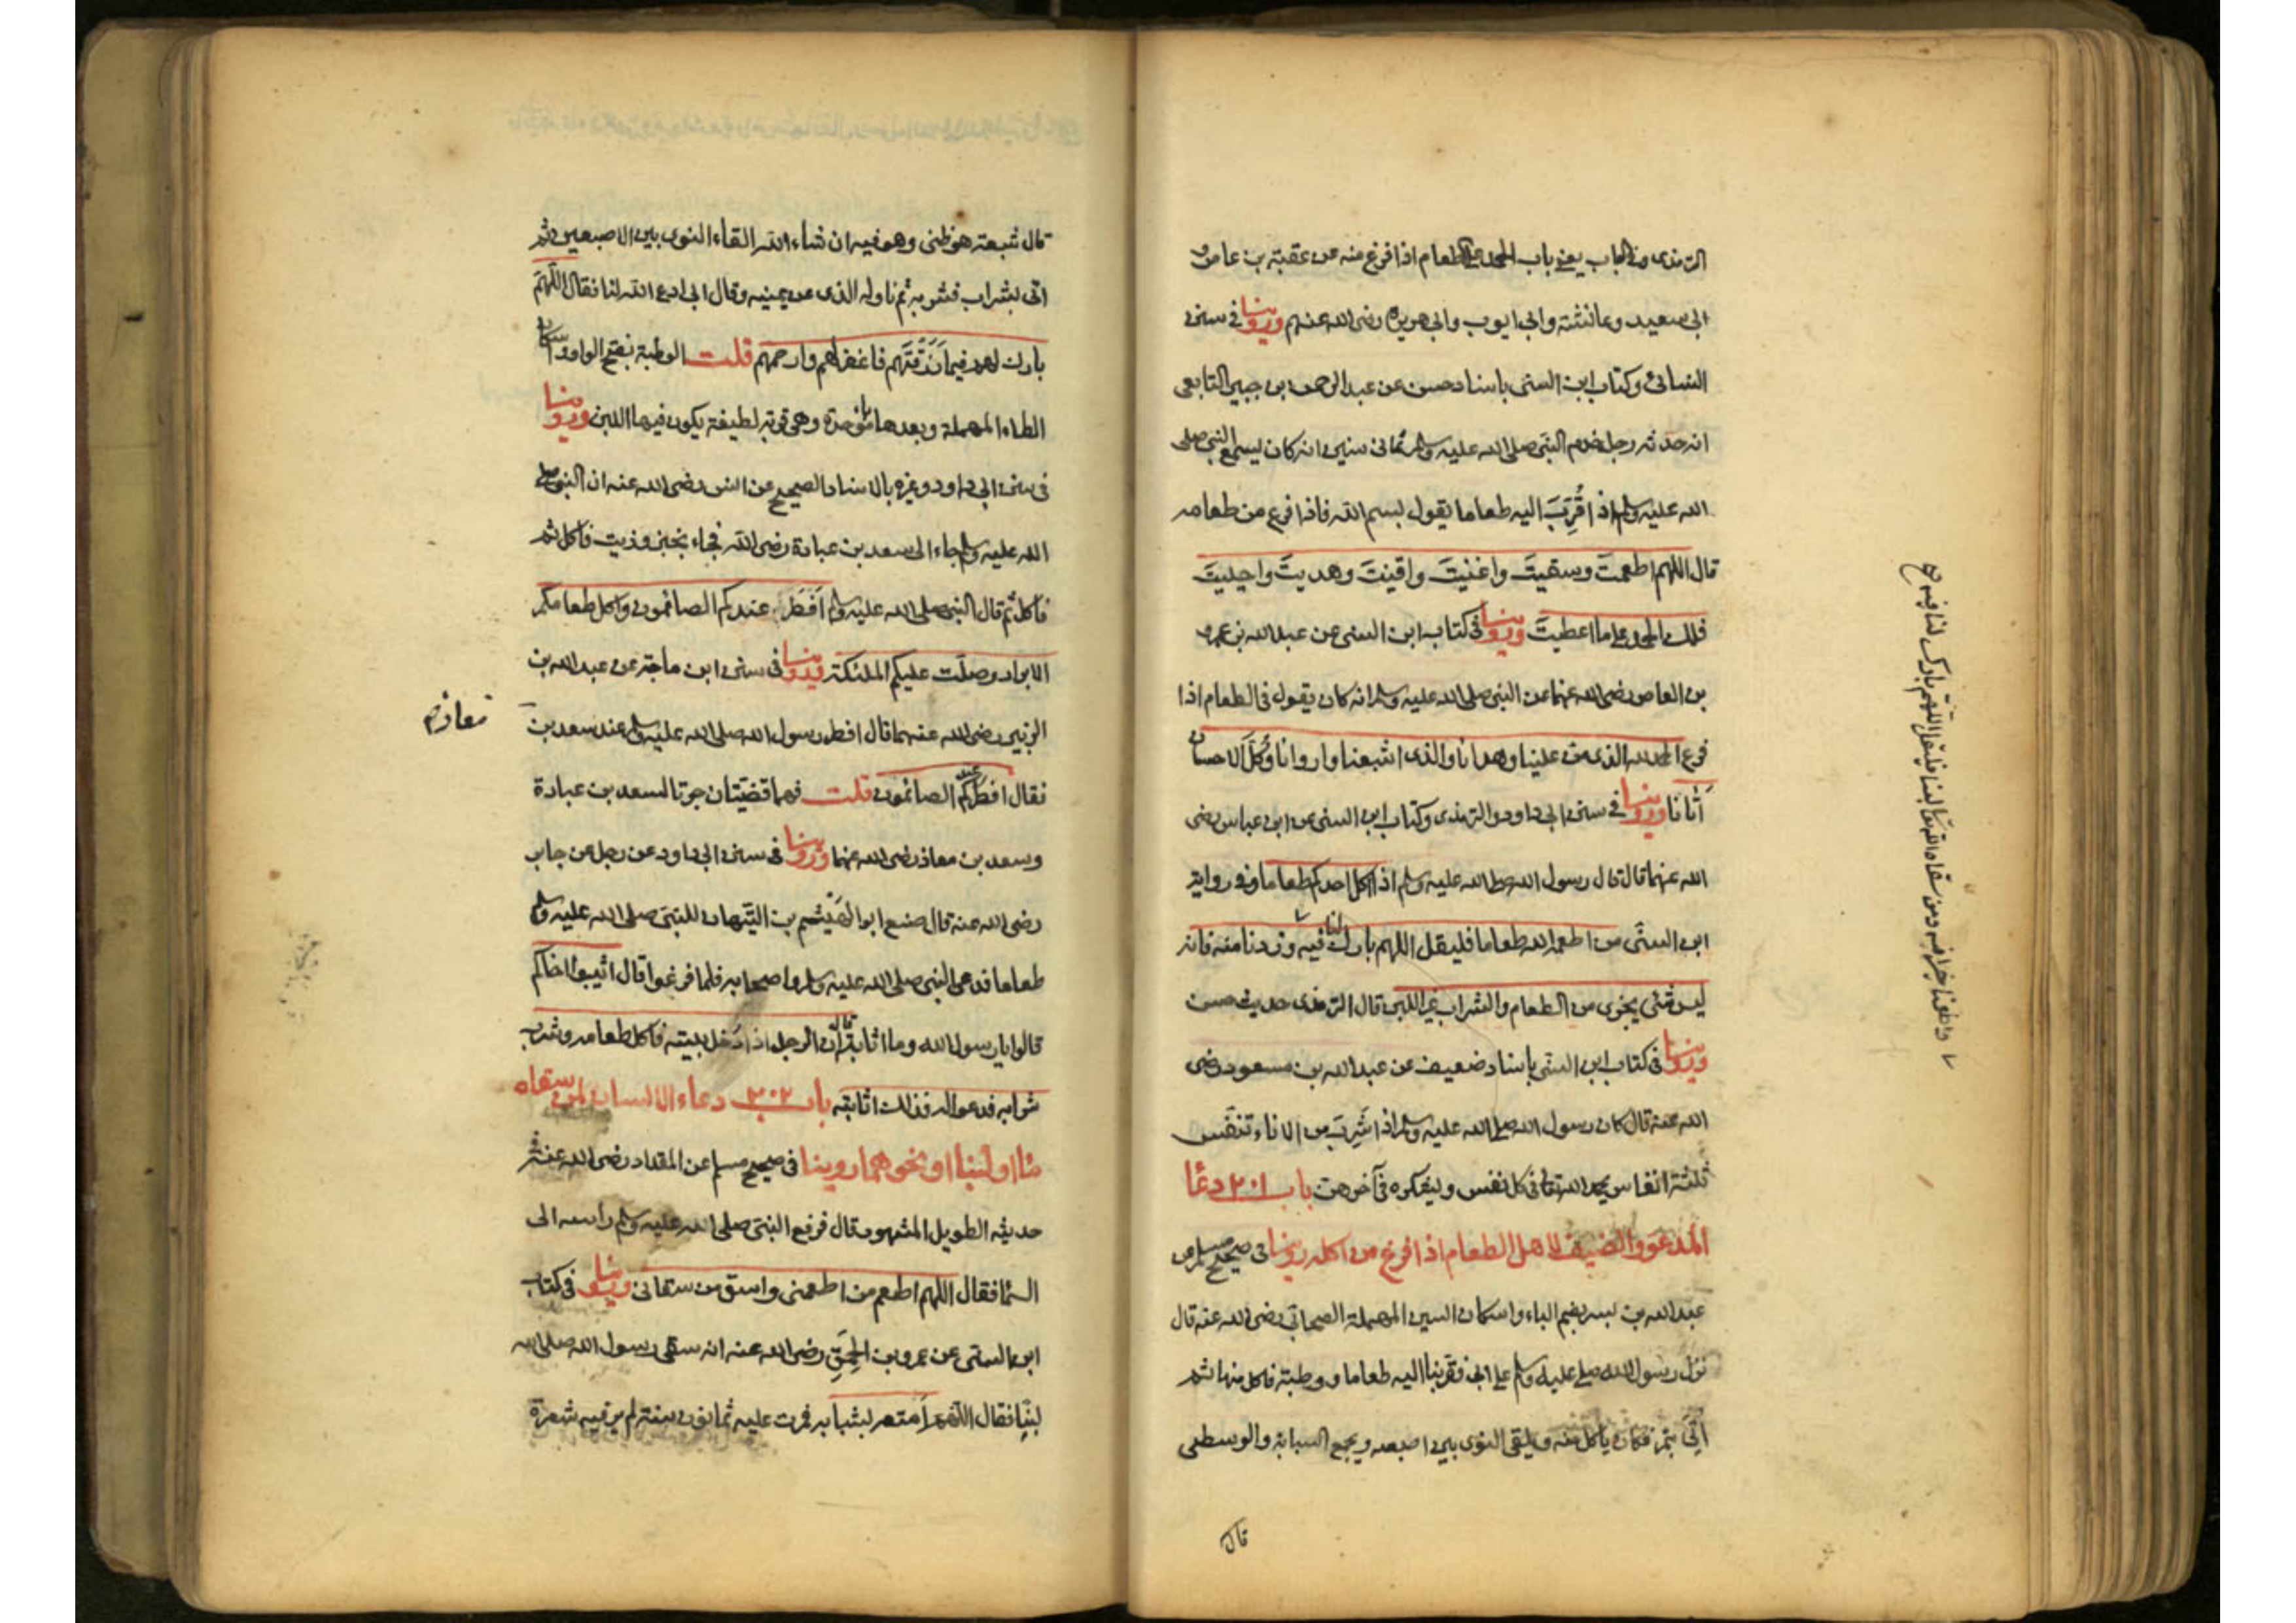 الترمذي وفي الباب يعني باب الحمد على الطعام اذا فرغ منه عن عقبة بن عامر و
ابي سعيد وعائشة وابي ايوب وابي هريرة رضى الله عنهم وروينا في سنن
النسائي وكتاب ابن السني باسناد حسن عن عبد الرحمن بن جبير التابعى
انه حدثه رجل خدم النبي صلى الله عليه وسلم ثماني سنين انه كان يسمع النبي صلى
الله عليه وسلم اذا قُرِّبَ اليه طعاما يقول بسم الله فاذا فرغ من طعامه
قال اللهم اطعمتَ وسقيتَ واغنيتَ واقنيتَ وهديتَ واحييتَ
فلك الحمد على ما اعطيتَ وروينا في كتاب ابن السنى عن عبد الله بن عمرو
بن العاص رضى الله عنهما عن النبي صلى الله عليه وسلم انه كان يقول فى الطعام اذا
فرغ الحمد لله الذى منّ علينا وهدانا والذى اشبعنا واروانا وكُلَّ الاحسان
أتانا وروينا في سنن ابي داود والترمذى وكتاب ابن السنى عن ابن عباس رضى
الله عنهما قال قال رسول الله صلى الله عليه وسلم اذا اكل احدكم طعاما وفي رواية
ابن السنّى من اطعمه الله طعاما فليقل اللهم بارك لنا فيه وزدنا منه فانه
واطعمنا خيرا منه ومن سقاه الله تعالى لبنا فليقل اللهم بارك لنا فيه
ليس شئ يجزى من الطعام والشراب غير اللبن قال الترمذى حديث حسن
وروينا فى كتاب ابن السنى باسناد ضعيف عن عبد الله بن مسعود رضى
الله عنه قال كان رسول الله صلى الله عليه وسلم اذا شَرِبَ من الاناء تنفّس
ثلثة انفاس يحمد الله تعالى فى كل نفس ويشكره فى آخرهن باب ٢٠١ دعاء
المدعو والضيف لاهل الطعام اذا فرغ من اكله روينا فى صحيح مسلم عن
عبد الله بن بسر بضم الباء واسكان السين المهملة الصحابي رضى الله عنه قال
نزل رسول الله صلى عليه وسلم على ابى فقربنا اليه طعاما ووطبة فاكل منها ثم
أُتِيَ بتمر فكان ياكل منه ويلقى النوى بين اصبعيه ويجمع السبابة والوسطى
قال
قال شعبة هو ظنى وهو فيه ان شاء الله القاء النوى بين الاصبعين ثم
اتى بشراب فشربه ثم ناوله الذى عن يمينه وقال ابى ادع الله لنا فقال اللّهمّ
بارك لهم فيما رَزَقْتَهم فاغفر لهم وارحمهم قلت الوطبة بفتح الواو واسكان
الطاء المهملة وبعدها باء موحدة وهى قربة لطيفة يكون فيها اللبن وروينا
فى سنن ابى داود وغيره بالاسناد الصحيح عن انس رضى الله عنه ان النبى صلى
الله عليه وسلم جاء الى سعد بن عبادة رضى الله فجاء بخبز وزيت فاكل ثم
فاكل ثم قال النبى صلى الله عليه وسلم اَفْطَرَ عندكم الصائمون واكل طعامكم
الابرار وصلّت عليكم الملئكة وروينا فى سنن ابن ماجة عن عبد الله بن
الزبير رضى الله عنهما قال افطر رسول الله صلى الله عليه وسلم عند سعد بن
معاذ
فقال افطر عندكم الصائمون قلت فهما قضيتان جرتا لسعد بن عبادة
وسعد بن معاذ رضى الله عنهما وروينا فى سنن ابى داود عن رجل عن جابر
رضى الله عنه قال صنع ابو الهَيْثم بن التَّيِّهان للنبىّ صلى الله عليه وسلم
طعاما فدعى النبى صلى الله عليه وسلم واصحابه فلما فرغوا قال اثيبوا اخاكم
قالوا يا رسول الله وما اثابته قال ان الرجل اذا دُخل بيته فاكل طعامه وشرب
شرابه فدعوا له فذلك اثابته باب ٢٠٢ دعاء الانسان لمن سقاه
ماء او لبنا او نحوهما روينا فى صحيح مسلم عن المقداد رضى الله عنه فى
حديثه الطويل المشهور قال فرفع النبىّ صلى الله عليه وسلم راسه الى
السماء فقال اللهم اطعم من اطعمنى واسق من سقانى وروينا فى كتاب
ابن السنى عن عمرو بن الحَمِقِ رضى الله عنه انه سقى رسول الله صلى الله
لبنًا فقال اللّهمّ اَمتعه بشبابه فمرت عليه ثمانون سنة لم ير فيه شعرة